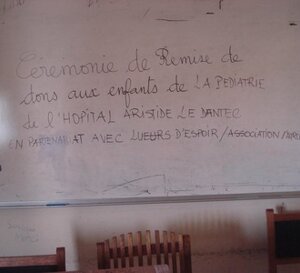 Cérémonie de Remise de
dons aux enfants de LA PEDIATRIE
de l'HOPITAL ARISTIDE LE DANTEC
EN PARTENARIAT AVEC LUEURS D'ESPOIR/ASSOCIATION